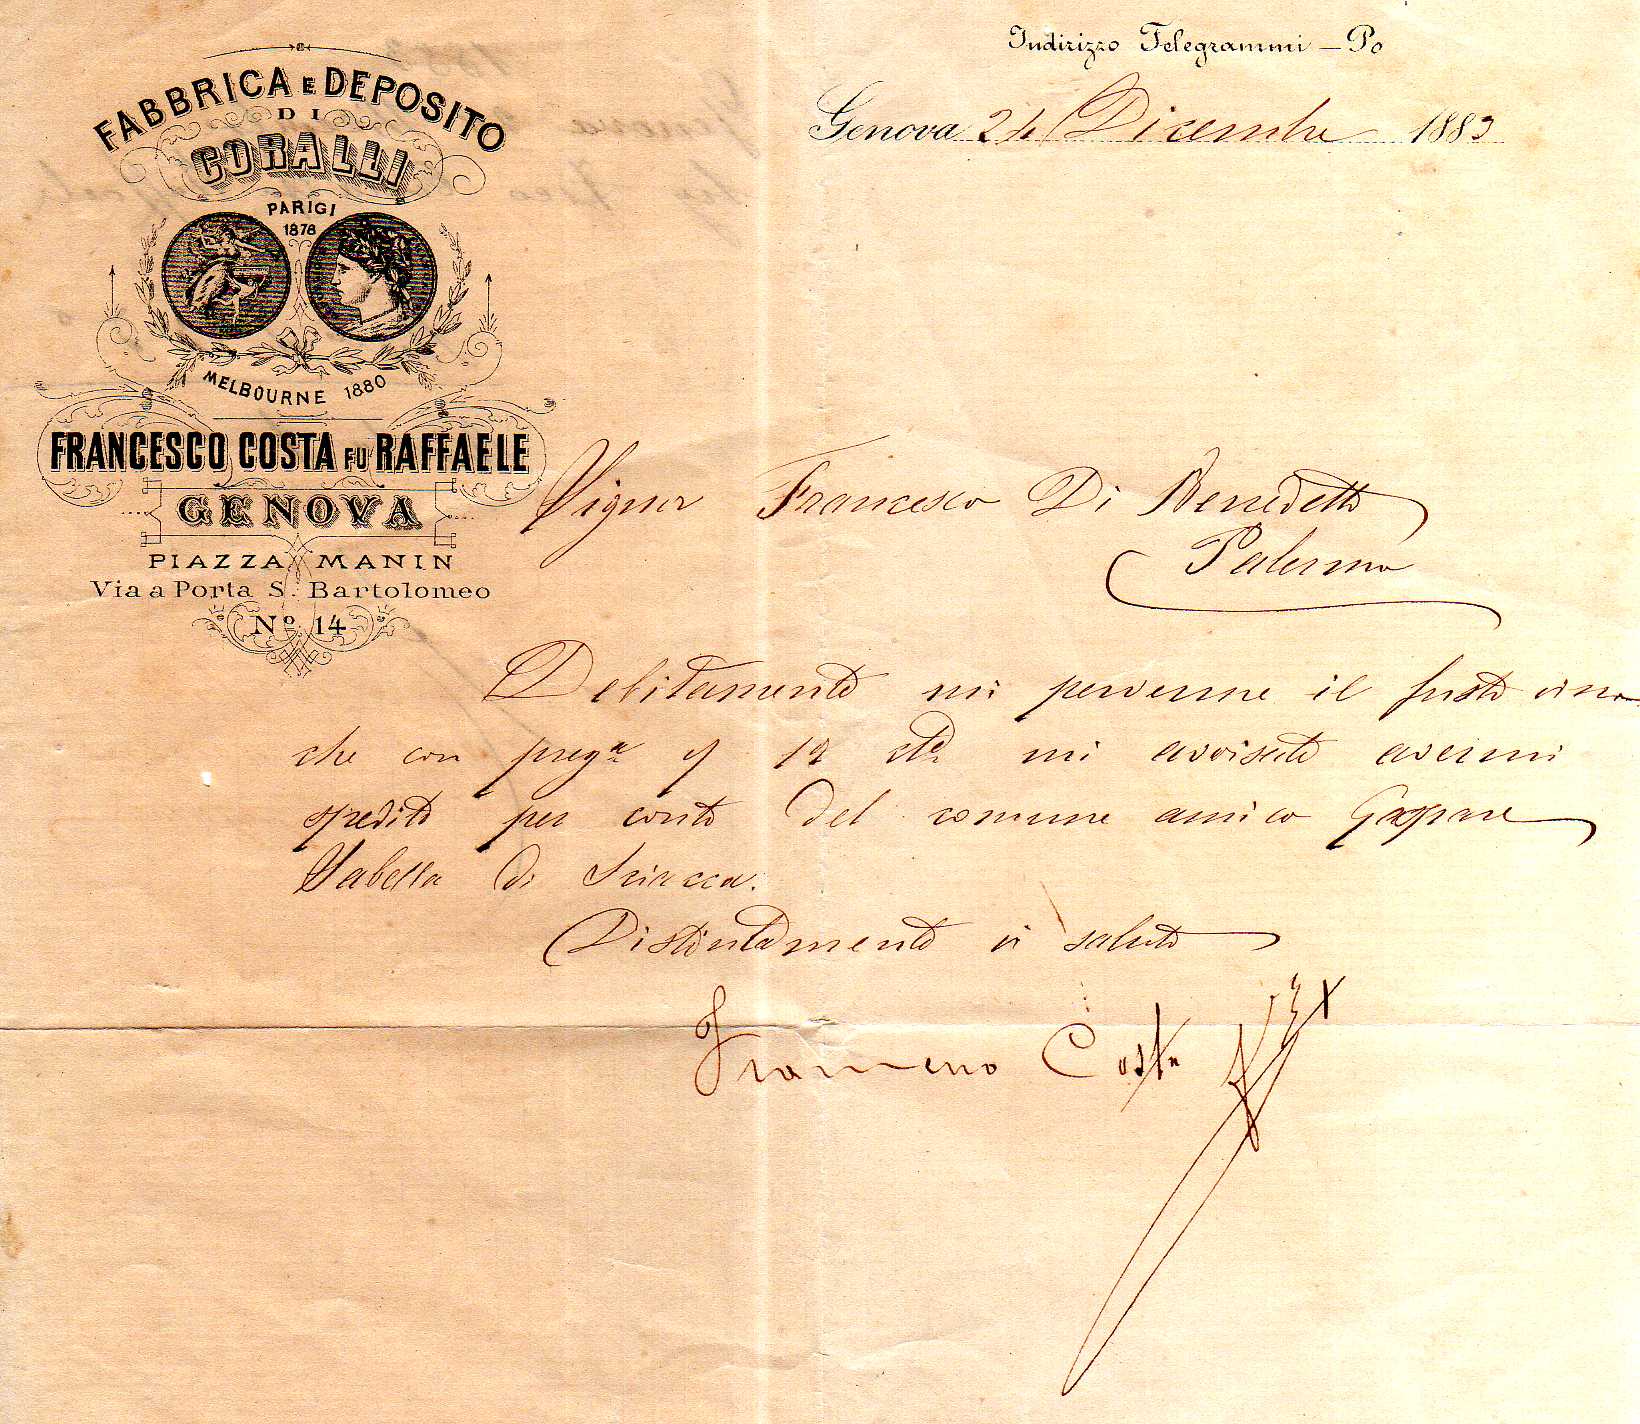 FABBRICA E DEPOSITO
DI
CORALLI
PARIGI
1878
MELBOURNE 1880
FRANCESCO COSTA FU RAFFAELE
GENOVA
PIAZZA MANIN
Via a Porta S. Bartolomeo
Nº 14
Indirizzo Telegrammi — Po
Genova 24 Dicembre 1883
Signor Francesco Di Benedetto
Palermo
Debitamente mi pervenne il fusto vino
che con pregª 19 mi avvisate avermi
spedito per conto del comune amico Gaspare
Sabella di Sciacca.
Distintamente vi saluto
Francesco Costa